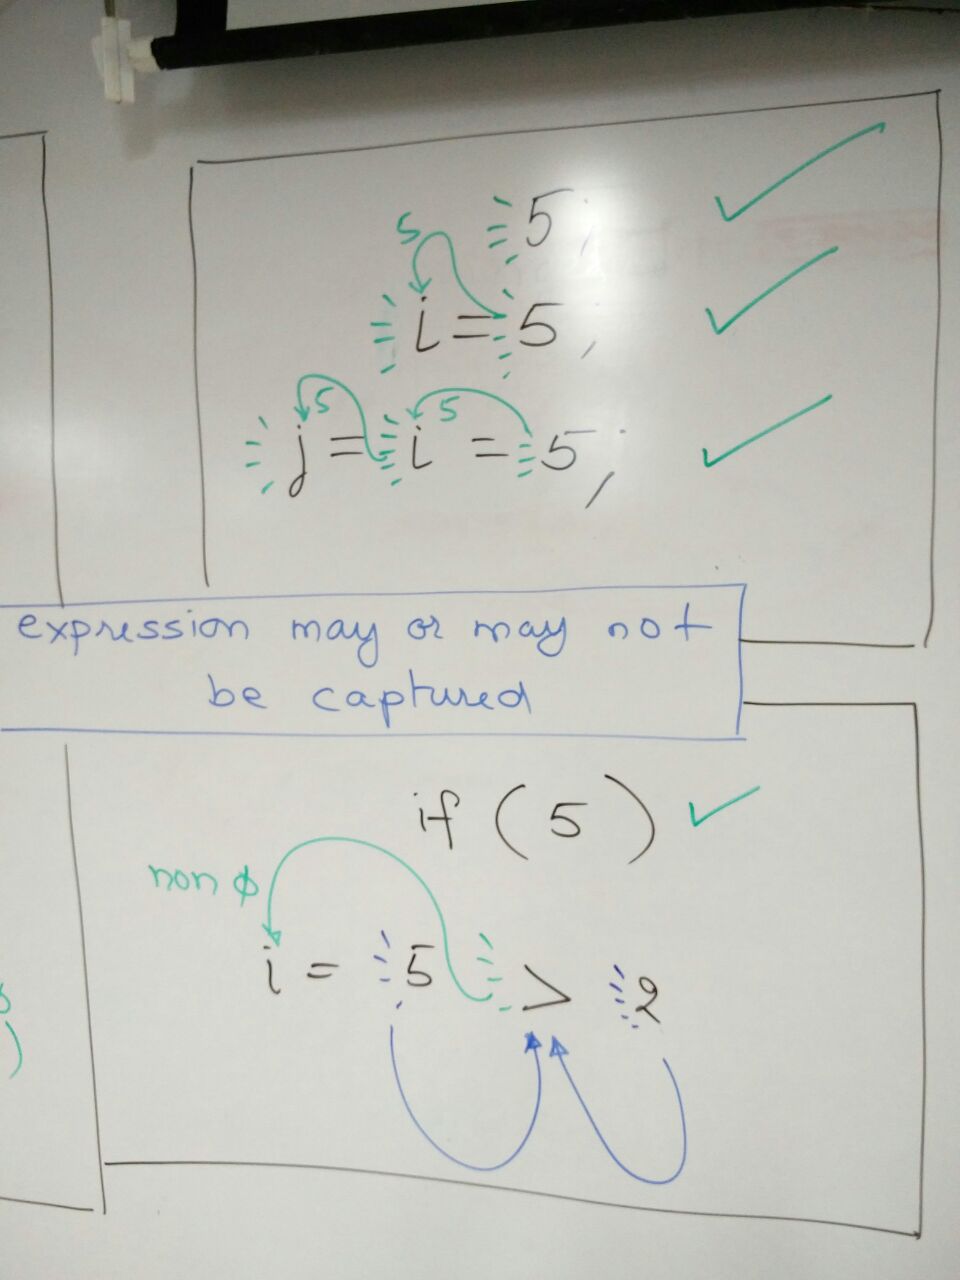 5;
5
i = 5;
5 5
j = i = 5;
expression may or may not
be captured
if (5)
non φ
i = 5 > 2